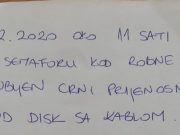 2.2020 OKO 11 SATI
SEMAFORU KOD ROBNE
UBLJEN CRNI PRIJENOSN
D DISK SA KABLOM.